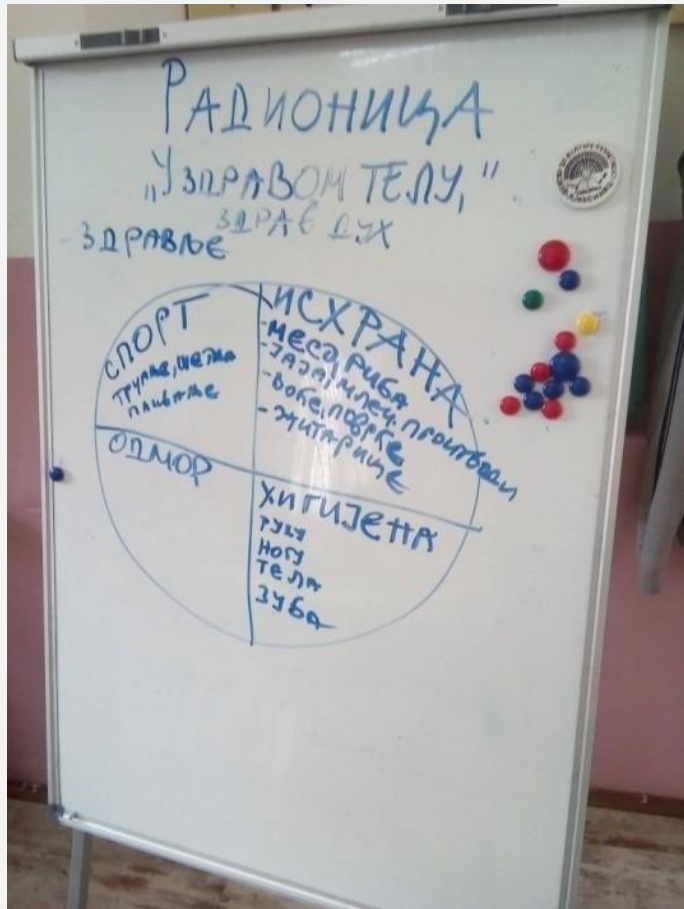 РАДИОНИЦА
„У ЗДРАВОМ ТЕЛУ,"
ЗДРАВ ДУХ
ЗДРАВЉЕ
СПОРТ
ТРЧАЊЕ, ШЕТЊА
ПЛИВАЊЕ
ИСХРАНА
-МЕСО, РИБА
-ЈАЈА, МЛЕЧ. ПРОИЗВОДИ
-ВОЋЕ, ПОВРЋЕ
-ЖИТАРИЦЕ
ОДМОР
ХИГИЈЕНА
РУКУ
НОГУ
ТЕЛА
ЗУБА